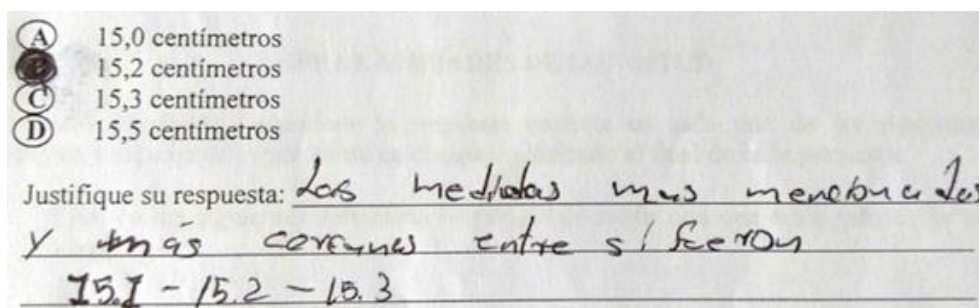 A 15,0 centímetros
15,2 centímetros
C 15,3 centímetros
D 15,5 centímetros
Justifique su respuesta: Las medidas mas mencionadas
y más cercanas entre sí fueron
15.1 - 15.2 - 15.3